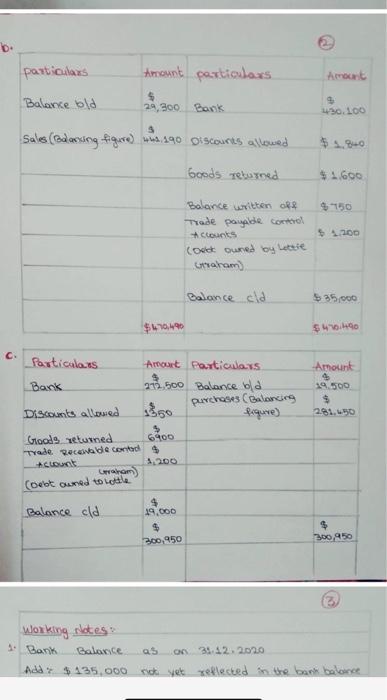 ②
b.
particulars Amount particulars Amount
Balance b/d $ 29,300 Bank $ 430,100
Sales (Balancing figure) $ 441,190 Discounts allowed $ 1,840
Goods returned $ 1,600
Balance written off $ 750
Trade payable control
Accounts $ 1,200
(Debt owned by Lettie
Graham)
Balance c/d $ 35,000
$ 470,490 $ 470,490
c.
Particulars Amount Particulars Amount
Bank $ 272,500 Balance b/d $ 19,500
Discounts allowed $ 1350 purchases (Balancing figure) $ 281,450
Goods returned $ 6900
Trade Receivable control $ 1,200
Account
Graham)
(Debt owned to Lottle
Balance c/d $ 19,000
$ 300,950 $ 300,950
③
Working Notes:
1. Bank Balance as on 31.12.2020
Add: $ 135,000 not yet reflected in the bank balance